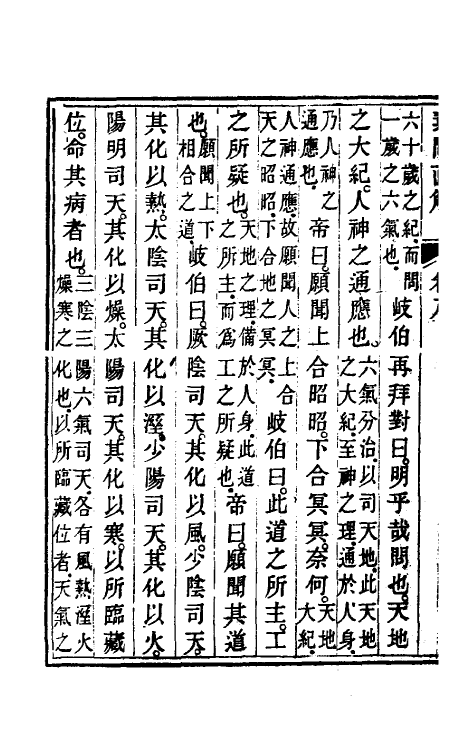 六十歲之紀而問一歲之六氣也。岐伯再拜對曰。明乎哉問也。天地
之大紀。人神之通應也。六氣分治。以司天地。此天地之大紀。至神之理。通於人身。
乃人神之通應也。帝曰。願聞上合昭昭。下合冥冥。奈何。天地大紀。
人神通應。故願聞人之上合天之昭昭。下合地之冥冥。岐伯曰。此道之所主。工
之所疑也。天地之理。備於人身。此道之所主。而爲工之所疑也。帝曰。願聞其道
也。願聞上下相合之道。岐伯曰。厥陰司天。其化以風。少陰司天。
其化以熱。太陰司天。其化以溼。少陽司天。其化以火。
陽明司天。其化以燥。太陽司天。其化以寒。以所臨藏
位。命其病者也。三陰三陽六氣司天。各有風熱溼火燥寒之化也。以所臨藏位者。天氣之